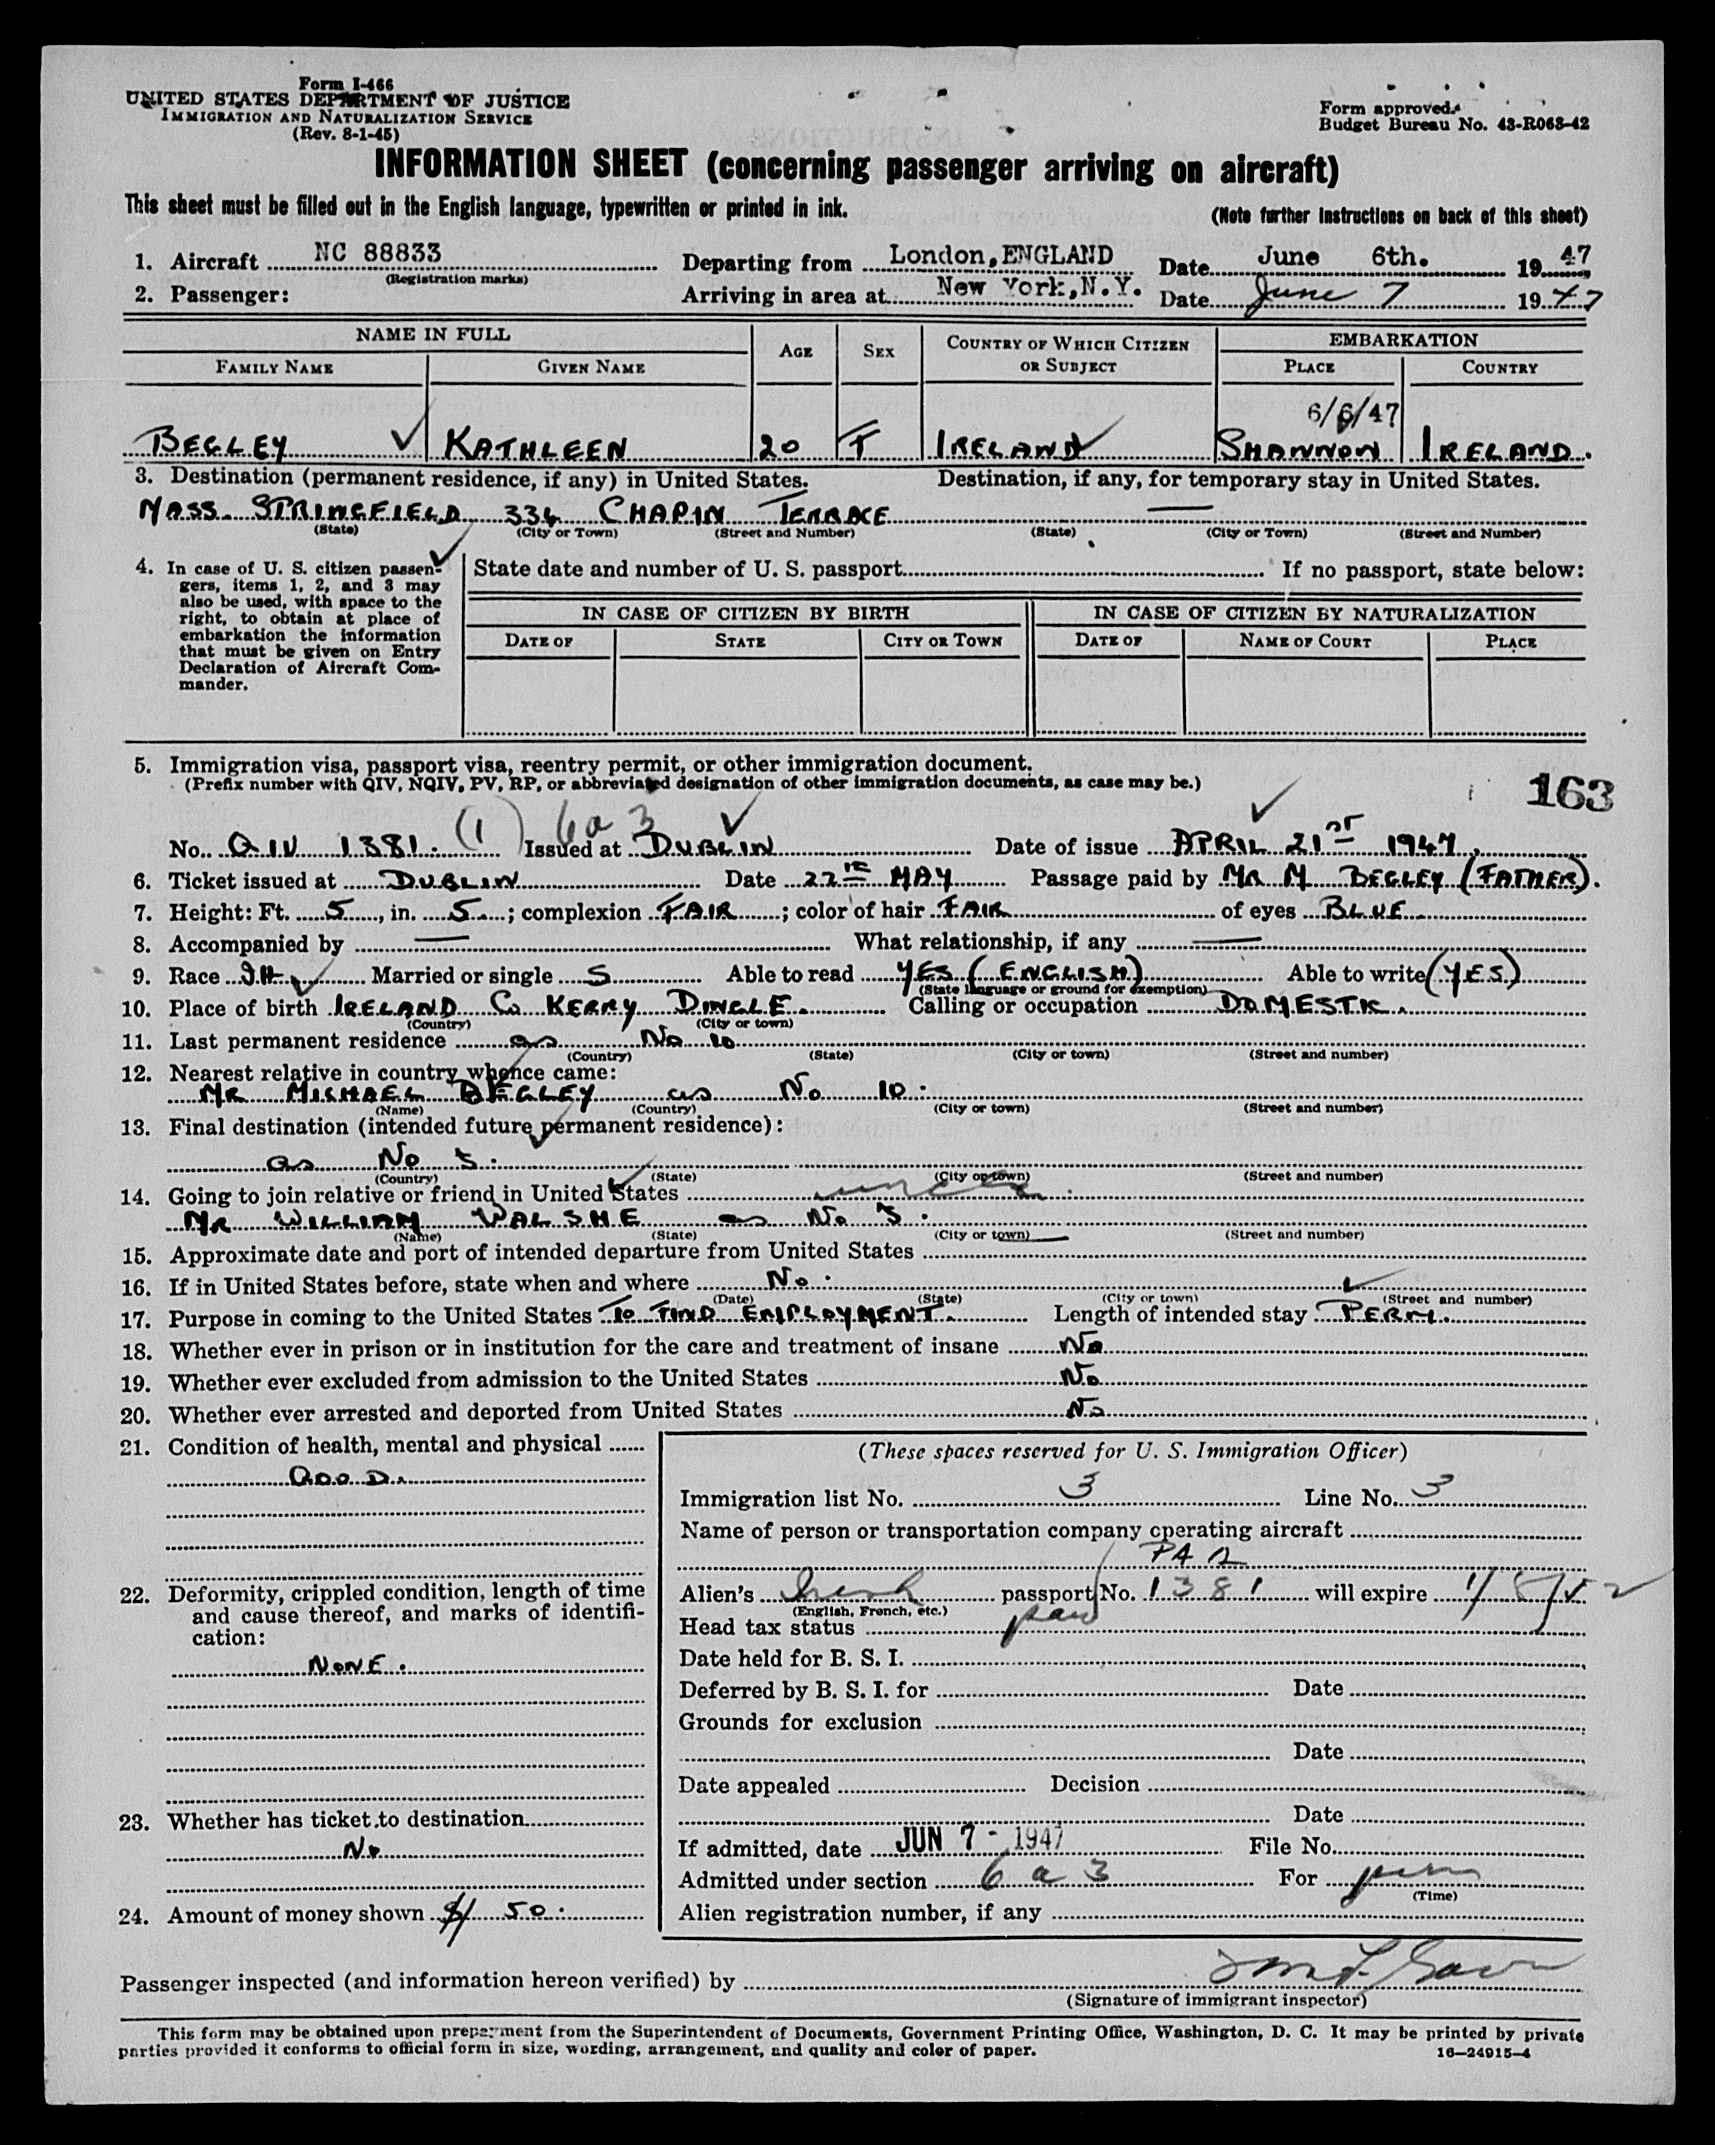 Form I-466
UNITED STATES DEPARTMENT OF JUSTICE
IMMIGRATION AND NATURALIZATION SERVICE
(Rev. 8-1-45)
Form approved.
Budget Bureau No. 43-R068-42
INFORMATION SHEET (concerning passenger arriving on aircraft)
This sheet must be filled out in the English language, typewritten or printed in ink.
(Note further instructions on back of this sheet)
1. Aircraft NC 88833 Departing from London, ENGLAND Date June 6th. 1947
(Registration marks)
2. Passenger: Arriving in area at New York, N.Y. Date June 7 1947
NAME IN FULL AGE SEX COUNTRY OF WHICH CITIZEN OR SUBJECT EMBARKATION
FAMILY NAME GIVEN NAME PLACE COUNTRY
6/6/47
BEGLEY KATHLEEN 20 F IRELAND SHANNON IRELAND.
3. Destination (permanent residence, if any) in United States. Destination, if any, for temporary stay in United States.
MASS. SPRINGFIELD 334 CHAPIN TERRACE —
(State) (City or Town) (Street and Number) (State) (City or Town) (Street and Number)
4. In case of U. S. citizen passen-
gers, items 1, 2, and 3 may
also be used, with space to the
right, to obtain at place of
embarkation the information
that must be given on Entry
Declaration of Aircraft Com-
mander.
State date and number of U. S. passport If no passport, state below:
IN CASE OF CITIZEN BY BIRTH IN CASE OF CITIZEN BY NATURALIZATION
DATE OF STATE CITY OR TOWN DATE OF NAME OF COURT PLACE
5. Immigration visa, passport visa, reentry permit, or other immigration document.
(Prefix number with QIV, NQIV, PV, RP, or abbreviated designation of other immigration documents, as case may be.)
163
(1) 6 a 3
No. QIV 1381. Issued at DUBLIN Date of issue APRIL 21st 1947.
6. Ticket issued at DUBLIN Date 22nd MAY Passage paid by MR M BEGLEY (FATHER).
7. Height: Ft. 5, in. 5; complexion FAIR; color of hair FAIR of eyes BLUE
8. Accompanied by — What relationship, if any —
9. Race IH Married or single S Able to read YES (ENGLISH) Able to write (YES)
(State language or ground for exemption)
10. Place of birth IRELAND Co KERRY DINGLE. Calling or occupation DOMESTIC.
(Country) (City or town)
11. Last permanent residence as No 10
(Country) (State) (City or town) (Street and number)
12. Nearest relative in country whence came:
MR MICHAEL BEGLEY as No 10.
(Name) (Country) (City or town) (Street and number)
13. Final destination (intended future permanent residence):
as No 3.
(Country) (State) (City or town) (Street and number)
14. Going to join relative or friend in United States uncle.
MR WILLIAM WALSHE as No 3.
(Name) (State) (City or town) (Street and number)
15. Approximate date and port of intended departure from United States —
16. If in United States before, state when and where No.
(Date) (State) (City or town) (Street and number)
17. Purpose in coming to the United States To FIND EMPLOYMENT. Length of intended stay PERM.
18. Whether ever in prison or in institution for the care and treatment of insane No
19. Whether ever excluded from admission to the United States No
20. Whether ever arrested and deported from United States No
21. Condition of health, mental and physical
GOOD.
22. Deformity, crippled condition, length of time
and cause thereof, and marks of identifi-
cation:
NONE.
23. Whether has ticket to destination
No
24. Amount of money shown $ 50.
(These spaces reserved for U. S. Immigration Officer)
Immigration list No. 3 Line No. 3
Name of person or transportation company operating aircraft
PAA
Alien's Irish passport No. 1381 will expire 1/5/52
(English, French, etc.)
Head tax status paid
Date held for B. S. I.
Deferred by B. S. I. for Date
Grounds for exclusion
Date
Date appealed Decision
Date
If admitted, date JUN 7 - 1947 File No.
Admitted under section 6 a 3 For perm
(Time)
Alien registration number, if any
Passenger inspected (and information hereon verified) by
(Signature of immigrant inspector)
This form may be obtained upon prepayment from the Superintendent of Documents, Government Printing Office, Washington, D. C. It may be printed by private
parties provided it conforms to official form in size, wording, arrangement, and quality and color of paper.
16—24915-4